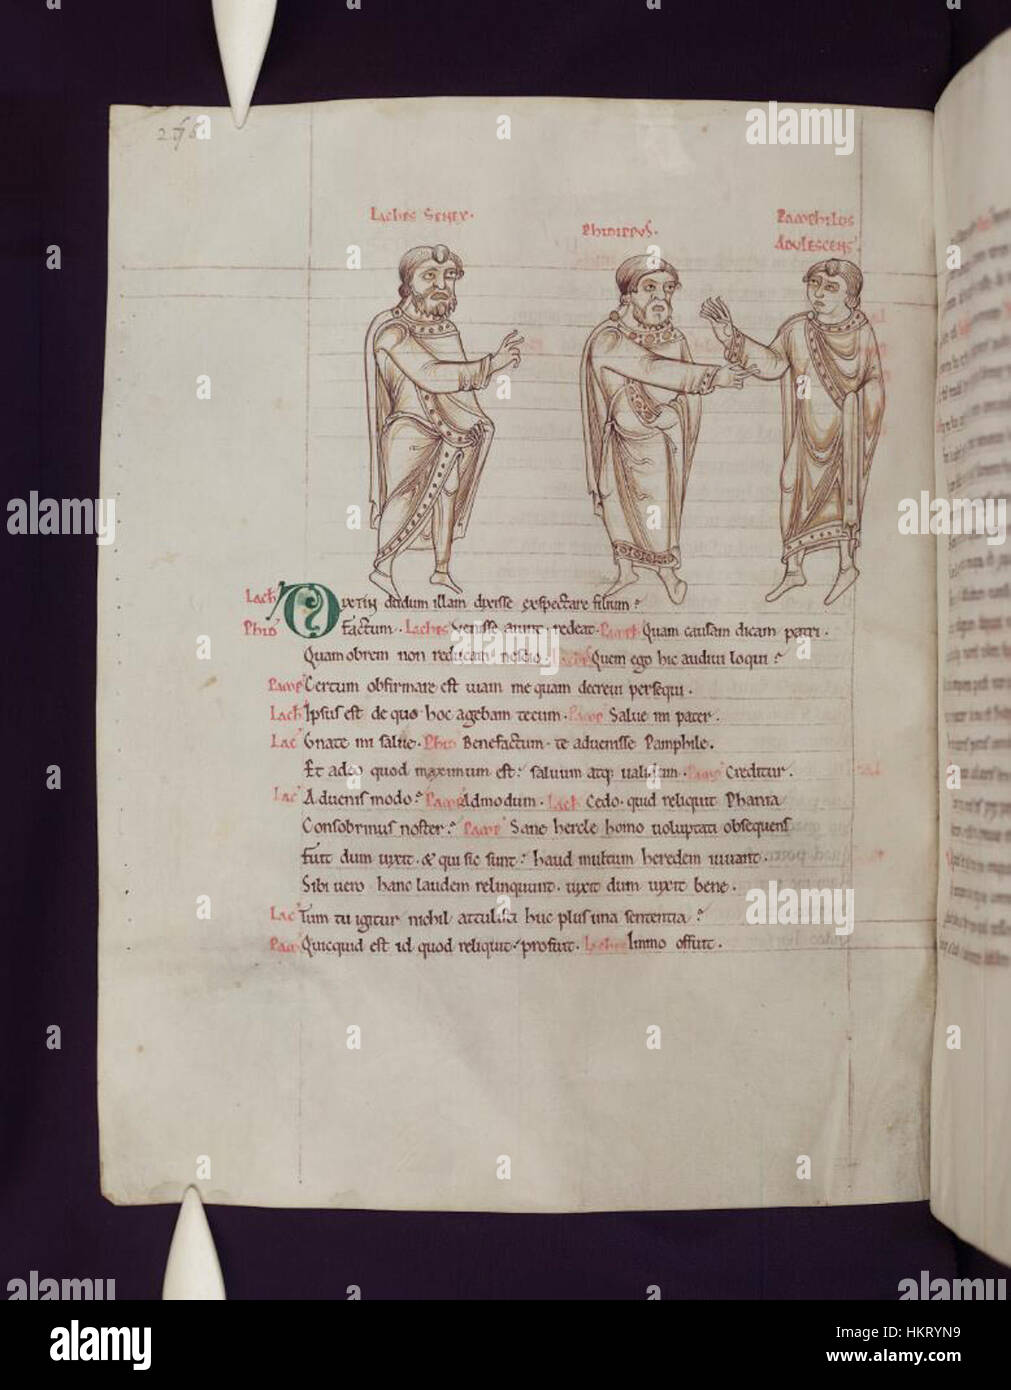 Laches Senex.
Phidippus.
Pamphilus
Adulescens.
Lach Oxetin dudum illam dixisse exspectare filium?
Phid factum. Laches Venisse aiunt. redeat. Pamp Quam causam dicam patri.
Quamobrem non reducam nescio. Quem ego hic audivi loqui?
Pamp Certum obfirmare est uiam me quam decreui persequi.
Lach Ipsus est de quo hoc agebam tecum. Pamp Salue mi pater.
Lac Gnate mi salue. Phid Benefactum te aduenisse Pamphile.
Et adeo quod maximum est: saluum atq; ualidum. Pamp Creditur.
Lac Aduenis modo? Pamp Admodum. Lach Cedo. quid reliquit Phania
Consobrinus noster? Pamp Sane hercle homo uoluptati obsequens
fuit dum uixit. & qui sic sunt: haud multum heredem iuuant.
Sibi uero hanc laudem relinquunt. uixit dum uixit bene.
Lac Tum tu igitur nichil attulisti huc plus una sententia?
Pam Quicquid est id quod reliquit: profuit. Laches Immo offuit.
alamy
a
alamy stock photo
HKRYN9
www.alamy.com